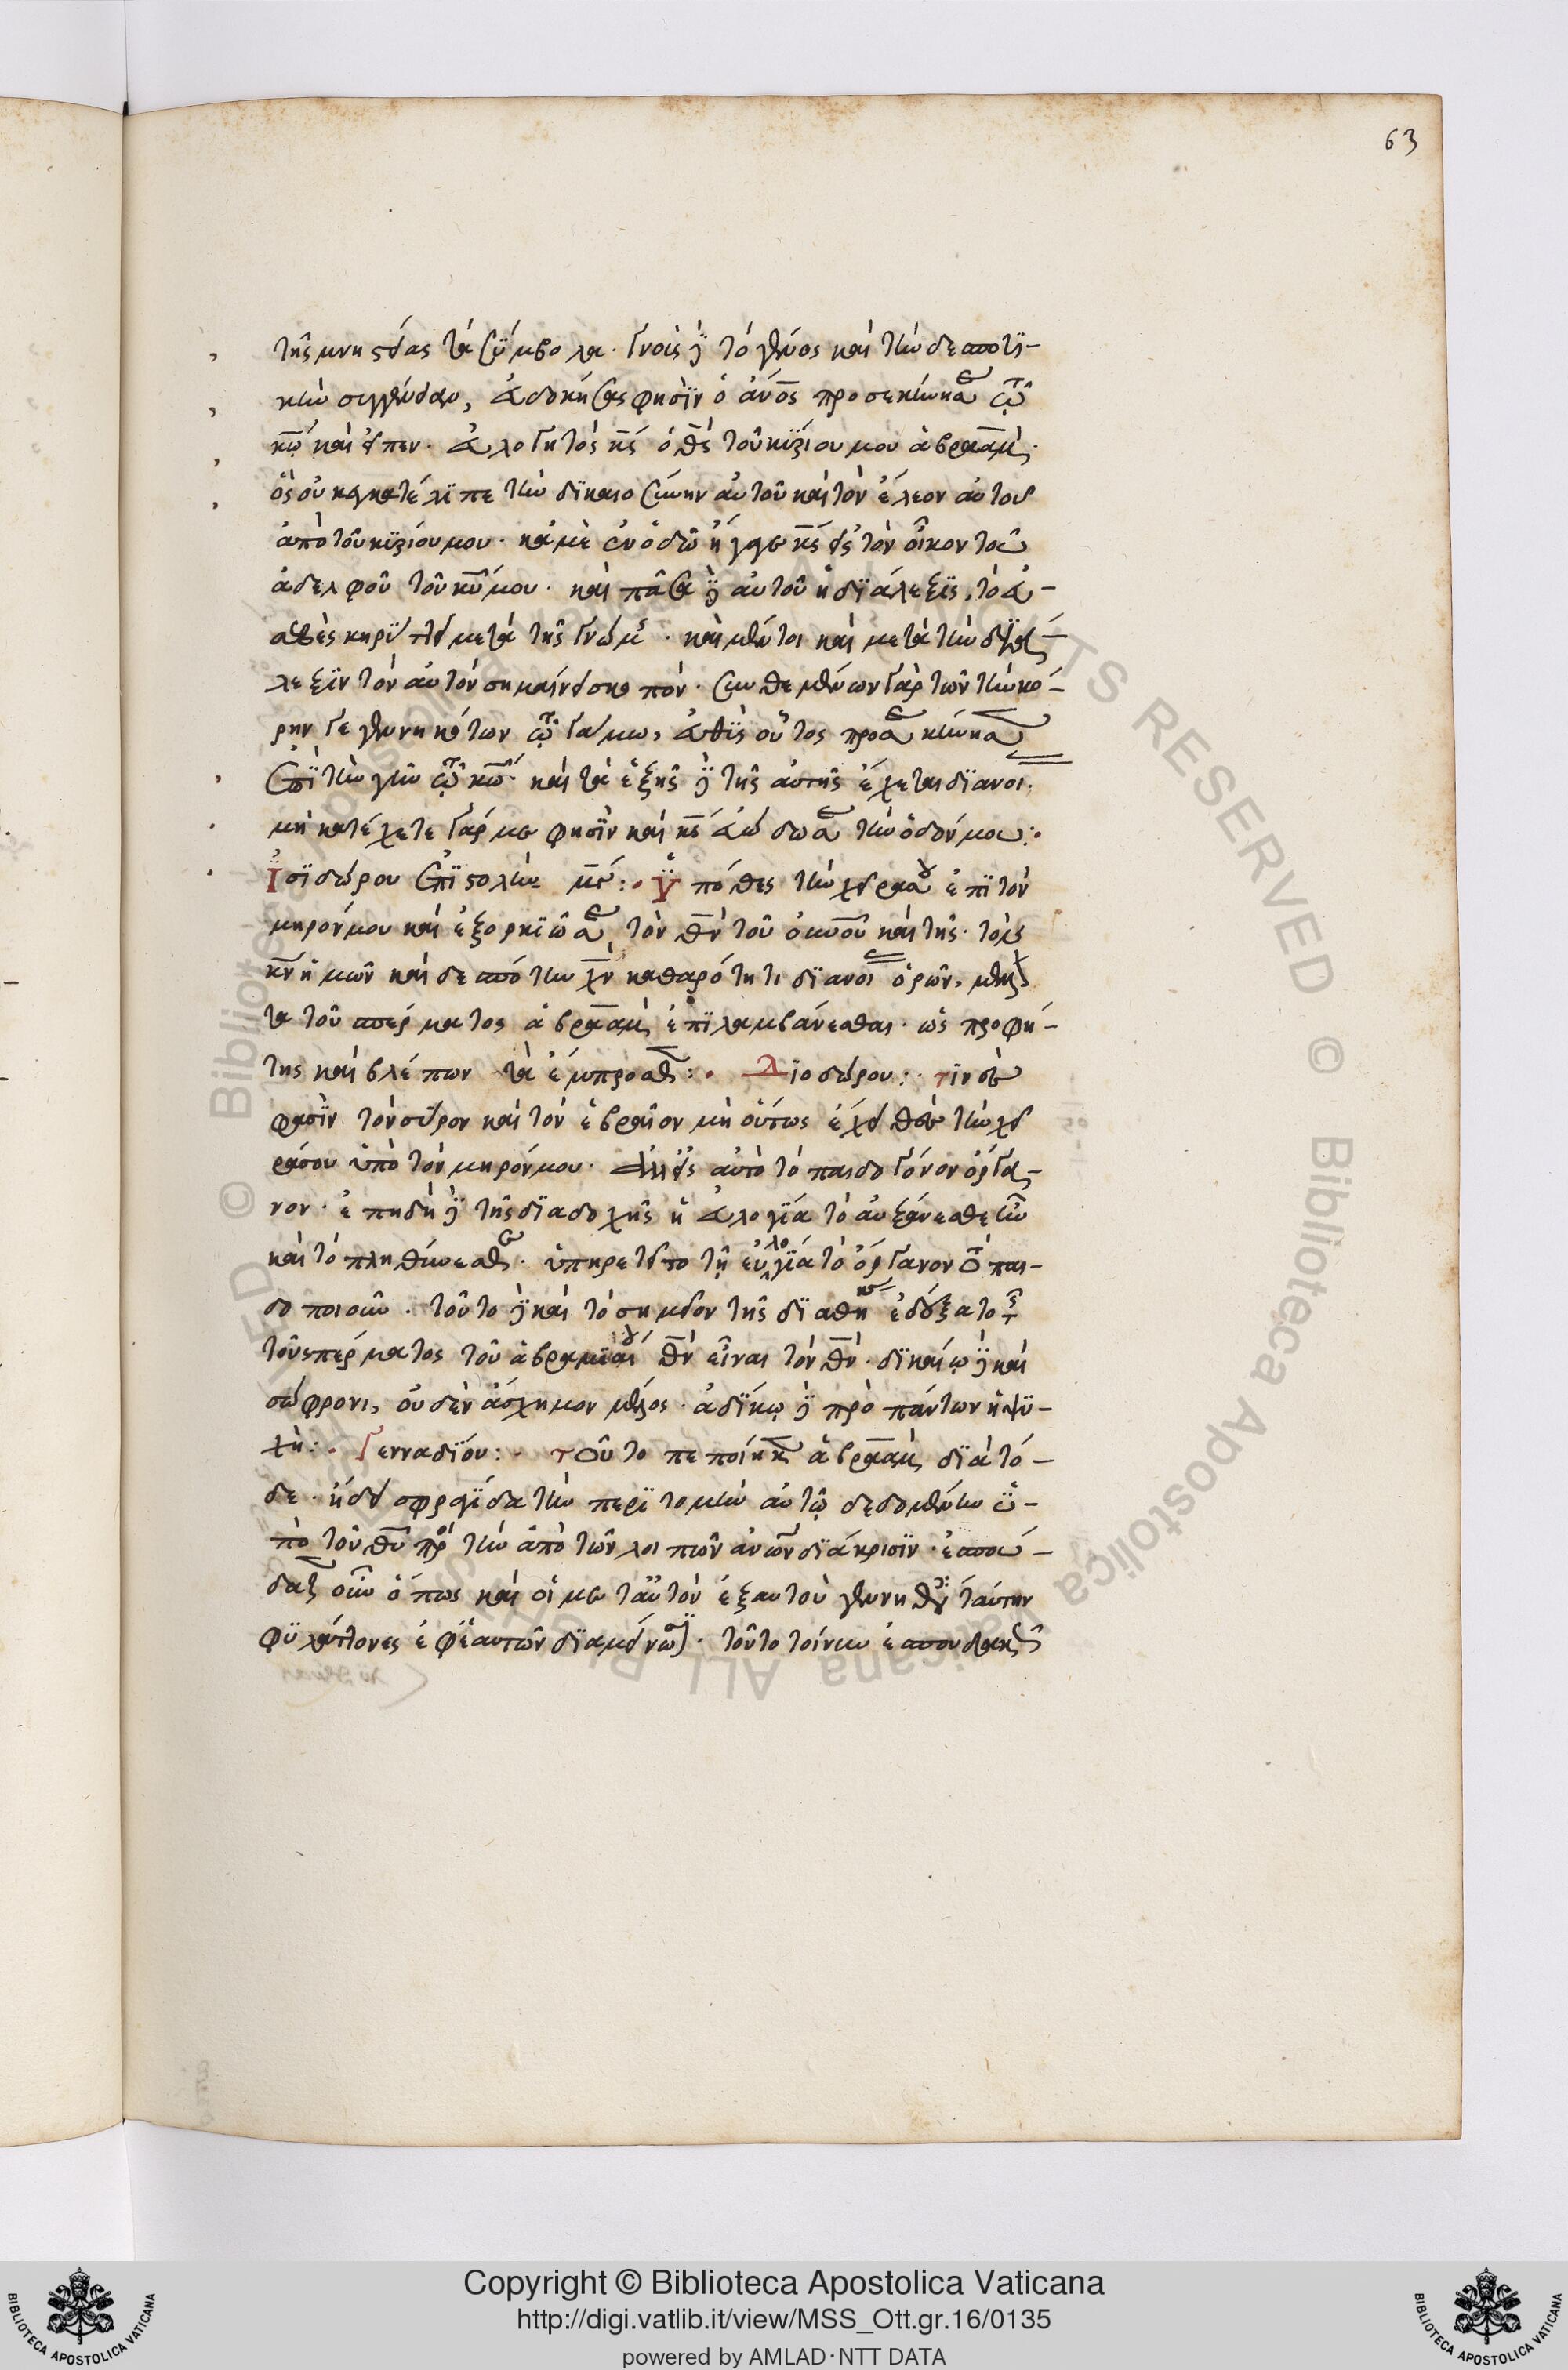 63
τῆς μνηστείας τὰ σύμβολα· γνοὺς δὲ τὸ γένος καὶ τὴν δεσποτι-
κὴν συγγένειαν, εὐδοκήσας φησὶν ὁ ἄνος προσεκύνησε τῶ
κω καὶ εἶπεν· εὐλογητὸς κς ὁ θς τοῦ κυρίου μου ἀβραάμ·
ὃς οὐκ ἐγκατέλιπε τὴν δικαιοσύνην αὐτοῦ καὶ τὸν ἔλεον αὐτοῦ
ἀπὸ τοῦ κυρίου μου· καμὲ εὐόδω ἤγαγε κς εἰς τὸν οἶκον τοῦ
ἀδελφοῦ τοῦ κυ μου· καὶ πᾶσα δὲ αὐτοῦ ἡ διάλεξις, τὸ εὐ-
σεβὲς κηρύττει μετὰ τῆς γνώμης· καὶ μέντοι καὶ μετὰ τὴν διά-
λεξιν τὸν αὐτὸν σημαίνει σκοπόν· συνθεμένων γὰρ τῶν τὴν κό-
ρην γεγεννηκότων τῶ γάμω, εὐθὺς οὗτος προσεκύνησεν
ἐπὶ τὴν γῆν τῶ κω· καὶ τὰ ἑξῆς δὲ τῆς αὐτῆς ἔχεται διανοί·
μὴ κατέχετε γάρ με φησὶν καὶ κς εὐώδωσε τὴν ὁδόν μου:·
Ἰσιδώρου ἐπιστολῶν με:· Ὑπόθες τὴν χεῖρά σου ἐπὶ τὸν
μηρόν μου καὶ ἐξορκιῶ σε, τὸν θν τοῦ οὐνοῦ καὶ τῆς· τὸν
κν ἡμῶν καὶ δεσπότην χν καθαρότητι διανοί ὁρῶν, μέλλον
τα τοῦ σπέρματος ἀβραὰμ ἐπιλαμβάνεσθαι· ὡς προφή-
της καὶ βλέπων τὰ ἔμπροσθεν:· Διοδώρου:· τινές
φασὶν τὸν σύρον καὶ τὸν ἑβραῖον μὴ οὕτως ἔχει θὲς τὴν χεῖ
ρά σου ὑπὸ τὸν μηρόν μου· ἀλλ' εἰς αὐτὸ τὸ παιδογόνον ὄργα-
νον· ἐπειδὴ δὲ τῆς διαδοχῆς ἡ εὐλογία τὸ αὐξάνεσθε ἦν
καὶ τὸ πληθύνεσθαι· ὑπηρετεῖτο τῆ εὐλογία τὸ ὄργανον τὸ παι-
δοποιοῦν· τοῦτο δὲ καὶ τὸ σημεῖον τῆς διαθήκης ἐδέξατο
τοῦ σπέρματος τοῦ ἀβραμιαίου θν εἶναι τὸν θν· δικαίω δὲ καὶ
σώφρονι, οὐδὲν ἄσχημον μέλος· ἀδίκω δὲ πρὸ πάντων ἡ ψυ-
χή:· Γενναδίου:· τοῦτο πεποίηκεν ἀβραὰμ διὰ τό-
δε· ἤδει σφραγίδα τὴν περιτομὴν αὐτῶ δεδομένην ὑ-
πὸ τοῦ θυ πρὸς τὴν ἀπὸ τῶν λοιπῶν ἀνων διάκρισιν· ἐσπού-
δαζεν οὖν ὅπως καὶ οἱ μετ' αὐτὸν ἐξ αὐτοῦ γενηθέντες ταύτην
φυλάττοντες ἐφ' ἑαυτῶν διαμείνωσι· τοῦτο τοίνυν ἐσπουδακὼς